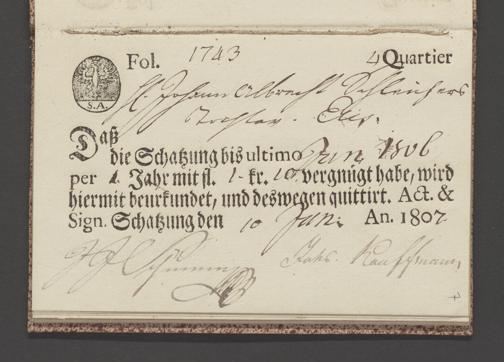 Fol. 1743 4 Quartier
S.A.
H. Johann Albrecht Schleichers
Daß
die Schatzung bis ultimo Jun. 1806
per 1. Jahr mit fl. 1. kr. 10. vergnügt habe, wird
hiermit beurkundet, und deswegen quittirt. Act. &
Sign. Schatzung den 10 Jan. An. 1807
Kauffmann